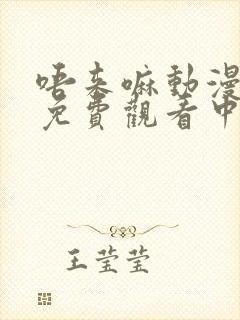 唔来嘛動漫
免費觀看中
王莹莹